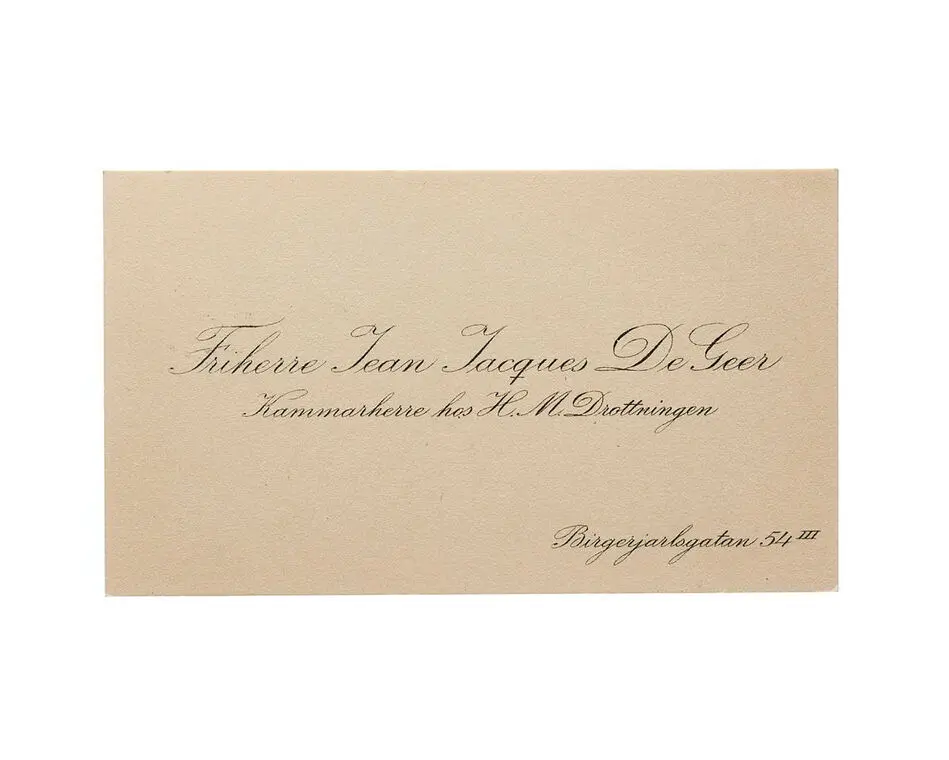 Friherre Jean Jacques De Geer
Kammarherre hos H. M. Drottningen
Birgerjarlsgatan 54 III